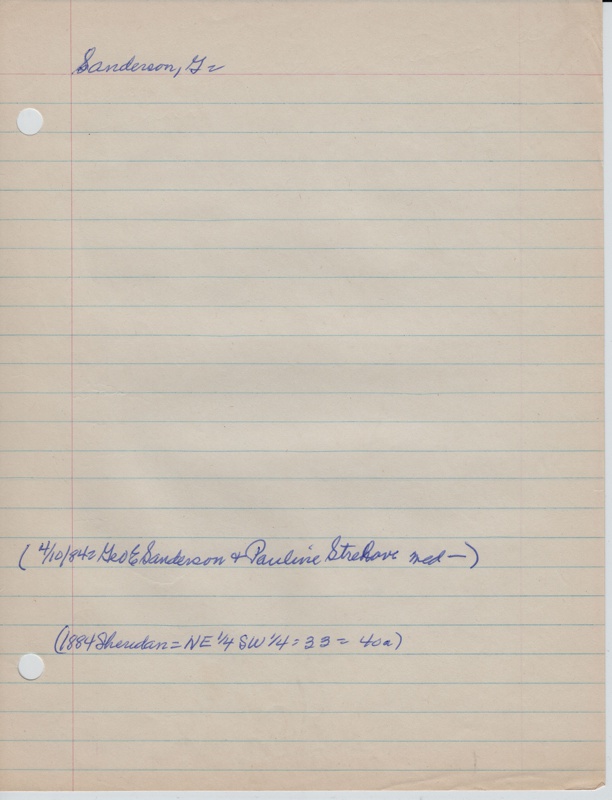 Sanderson, G=
(4/10/84= Geo E Sanderson & Pauline Strehove med —)
(1884 Sheridan = NE 1/4 SW 1/4 = 33 = 40a)